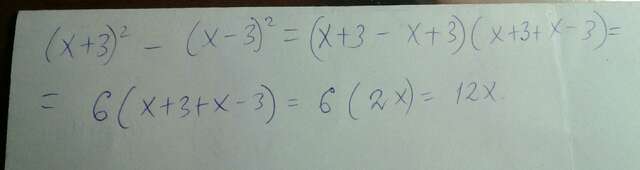 (x+3)² - (x-3)² = (x+3 - x+3)(x+3+x-3)=
= 6(x+3+x-3) = 6(2x)= 12x.